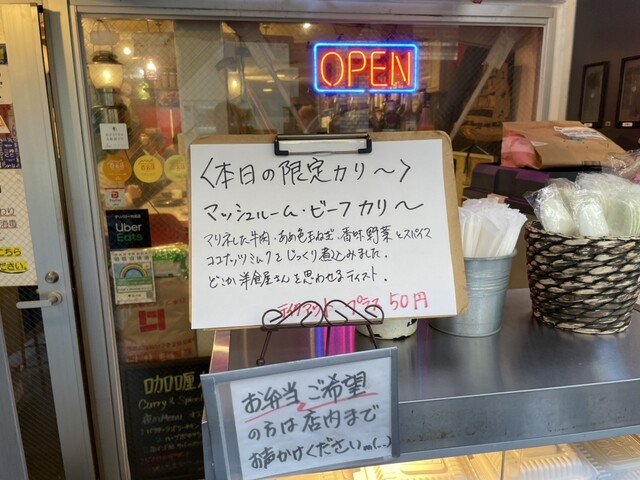 OPEN
〈本日の限定カリ〜〉
マッシュルーム・ビーフカリ〜
マリネした牛肉・あめ色玉ねぎ・香味野菜とスパイス
ココナッツミルクとじっくり煮込みました。
どこか洋食屋さんを思わせるテイスト。
テイクアウト プラス50円
お弁当ご希望
の方は店内まで
お声かけくださいm(..)
Uber
Eats
咖喱